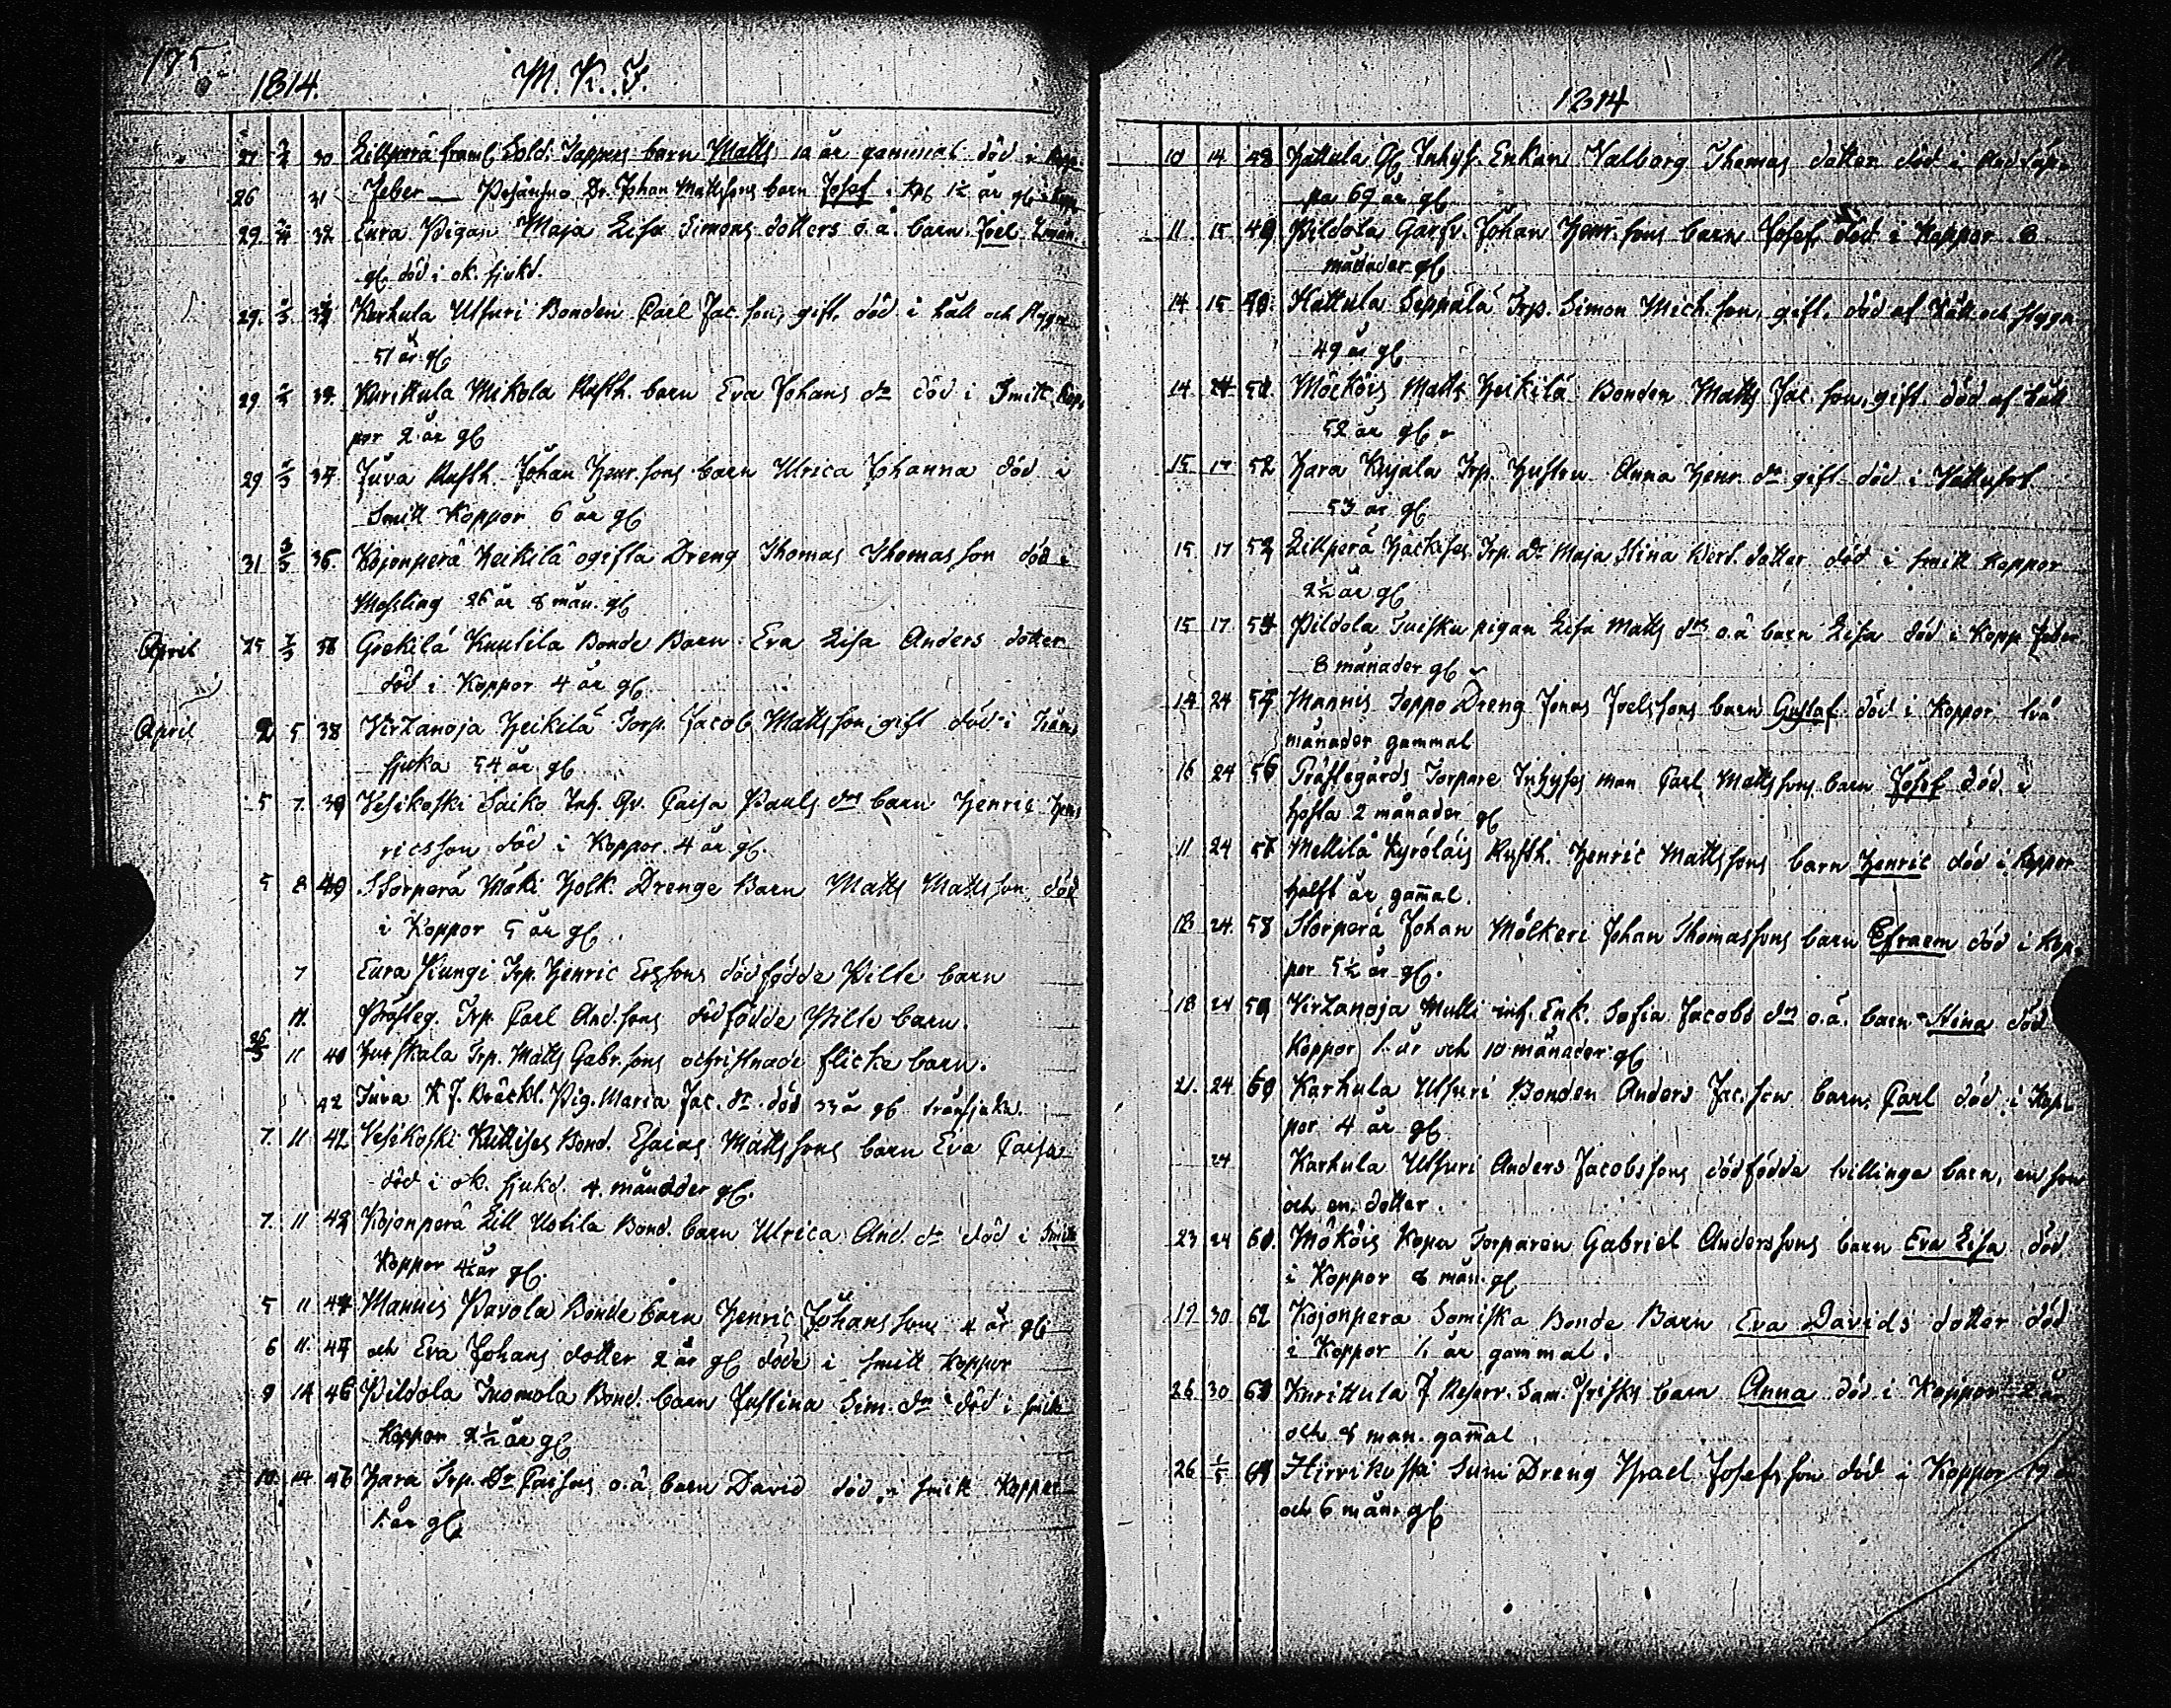 175
1814.
M. K. F.
27 30 Lillperä framl. Sold. Tappers barn Matts 10 år gammal död i
26 31 Feber Dr. Johan Mattssons barn Josef i 1½ år gl
29. 32 Eura Pigan Maja Lisa Simons dotters o.ä. barn Joel
gl död i ok. sjukd.
29. Karhula Utsuri Bonden Carl Jac. son, gift, död i håll och stygn
51 år gl
29 Kurittula Mikola Rusth. barn Eva Johans dr död i Smitt Kop
por 2 år gl
29 Juva Rusth. Johan Henr. sons barn Ulrica Johanna död i
Smitt Koppor 6 år gl
31 3/5 36. Kojonperä Heikilä ogifta Dreng Thomas Thomasson död i
Messling 26 år 8 mån. gl
April 25 Knutila Bonde Barn Eva Lisa Anders dotter
död i Koppor 4 år gl
April 2 5 38 Virzanoja Heikilä Torp. Jacob Mattsson, gift död i Trån
sjuka 54 år gl
5 7. 39 Vesikoski Saiko Inh. Caisa Pauls drs barn Henric Hen
ricsson död i Koppor 4 år gl.
5 8 40 Storperä Mäki Holk. Drenge Barn Matts Mattsson död
i Koppor 5 år gl.
7 Eura Pungi Trp. Henric Ersons dödfödde Pilte barn
11. Prästeg. Trp. Carl And.sons dödfödde Pilte barn.
26/3 11 Trp. Matts Gabr.sons ochristnade flicke barn.
42 Pig. Maria Jac. dr död 33 år gl trånsjuka.
7. 11 42 Vesikoski Kuttises Bond. Esaias Mattssons barn Eva Caisa
död i ok. sjukd. 4. månader gl.
7. 11 Kojonperä Lill Uotila Bond. barn Ulrica And. dr död i Smitt
Koppor 4½ år gl.
5 11 44 Mannis Pavola Bonde barn Henric Johansson 4 år gl
6 11. och Eva Johans dotter 2 år gl döde i smitt koppor
9 14 46 Pildola Tuomola Bond. barn Justina Sim. dr död i smitt
Koppor 2½ år gl
10. 14 Hara Trp. Dr Caisas o.ä. barn David död i smitt Koppor
1. år gl
1814
10 14 48 Hattula Inhys. Enkan Valborg Thomas dotter död i
69 år gl
11 15 49 Pildola Garfv. Johan Henr.sons barn Josef död i Koppor 8
månader gl
14 15 50. Hattula Seppälä Trp. Simon Mich.son, gift, död af Håll och styggn
49 år gl
14 Möcköis Matts Heikilä Bonden Matts Jac.son, gift, död af håll
52 år gl
15 17 52 Hara Kujala Trp. Hustru Anna Henr. dr gift död i Vattusot
53 år gl
15. 17 53 Lillperä Trp. Dr Maja Stina dotter död i smitt koppor
2½ år gl
15 17. 54 Pildola Tuisku pigan Lisa Matts drs o.ä barn Lisa död i Kopp. feber
8 månader gl
24 Mannis Toppo Dreng Jonas Joelssons barn Gustaf död i Koppor två
månader gammal
16 24 56 Prästegårds Torpare Inhyses man Carl Mattssons barn Josef död i
hosta 2 månader gl
11 24 57 Mellilä Kyröläis Rusth. Henric Mattssons barn Henric död i Koppor
halft år gam̄al.
18 24. 58 Storperä Johan Mölkeri Johan Thomassons barn Efraem död i Kop
por 5½ år gl.
18 24 59 Virzanoja Mulli inh. Enk. Sofia Jacobs drs o.ä. barn Stina död
Koppor 1. år och 10 månader gl
21. 24 60 Karhula Utsuri Bonden Anders Jac.son barn Carl död i Kop
por 4 år gl
24 Karhula Utsuri Anders Jacobssons dödfödda tvillinge barn, en son
och en dotter.
23 24 Mököis Kopa Torparen Gabriel Anderssons barn Eva Lisa död
i Koppor 8 mån. gl
19 30 62 Kojonpera Somiska Bonde Barn Eva Davids dotter död
i Koppor 1. år gammal.
26 30 63 Kurittula Reserv. Sam. Frisks barn Anna död i Koppor 2 år
och 8 mån. gam̄al
26 1/5 64 Hirvikoski Suni Dreng Israel Josefsson död i Koppor 19
och 6 mån. gl